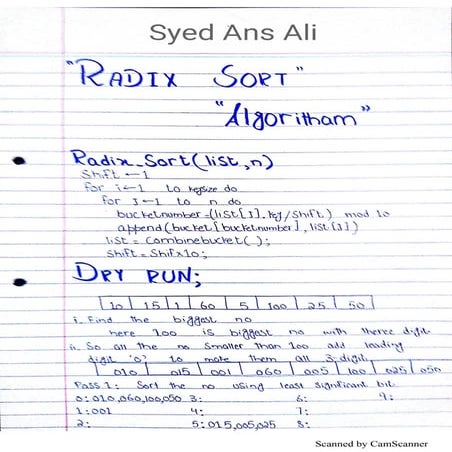 Syed Ans Ali
"RADIX SORT"
"Algoritham"
Radix_Sort(list,n)
Shift ←1
for i←1 to keysize do
for j←1 to n do
bucketnumber =(list[j].key/shift) mod 10
append(bucket[bucketnumber], list[j])
list = Combinebucket( );
Shift= Shifx10;
DRY RUN;
10 | 15 | 1 | 60 | 5 | 100 | 25 | 50
i. Find the biggest no
here 100 is biggest no with theree digit
ii. So all the no smaller than 100 add leading
digit '0' to make them all 3-digit,
010 | 015 | 001 | 060 | 005 | 100 | 025 | 050
Pass 1: Sort the no using least significant bit
0:010,060,100,050 3: 6: 9:
1:001 4: 7:
2: 5:015,005,025 8:
Scanned by CamScanner